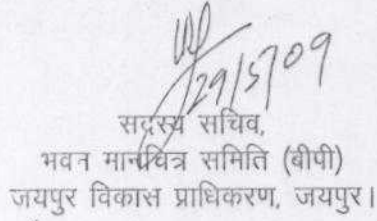 29/5/09
सदस्य सचिव,
भवन मानचित्र समिति (बीपी)
जयपुर विकास प्राधिकरण, जयपुर।